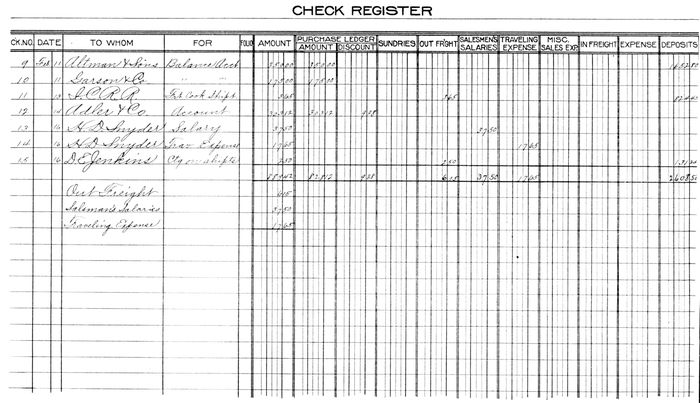 CHECK REGISTER
CK.NO. DATE TO WHOM FOR FOLIO AMOUNT PURCHASE LEDGER AMOUNT DISCOUNT SUNDRIES OUT FRIGHT SALESMEN'S SALARIES TRAVELING EXPENSE MISC. SALES EXP. IN FREIGHT EXPENSE DEPOSITS
9 Feb 11 Altman & Sons Balance Acct 350 00 350 00
10 11 Garson & Co. " " 175 00 175 00
11 I.C.R.R. 3 65 3 65
12 14 Adler & Co. Account 303 12 303 12 9 38
13 16 H.D. Snyder Salary 37 50 37 50
14 16 H.D. Snyder Trav. Expense 17 65 17 65
15 16 D.E. Jenkins 2 50 2 50
828 12 9 38 6 15 37 50 17 65 2608 50
Out Freight 6 15
Salesman's Salaries 37 50
Traveling Expense 17 65